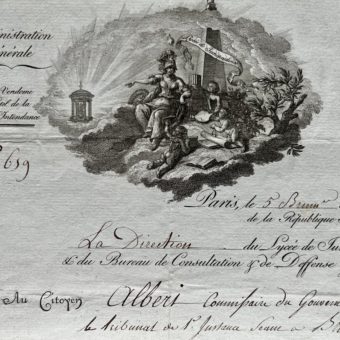 ministration
énérale
Vendome
el de la
Intendance
659
Paris, le 5 Brum.re
de la République
La Direction du Lycée de Ju
& du Bureau de Consultation & de Deffense
Au Citoyen Alberi Commissaire du Gouver
le tribunal de